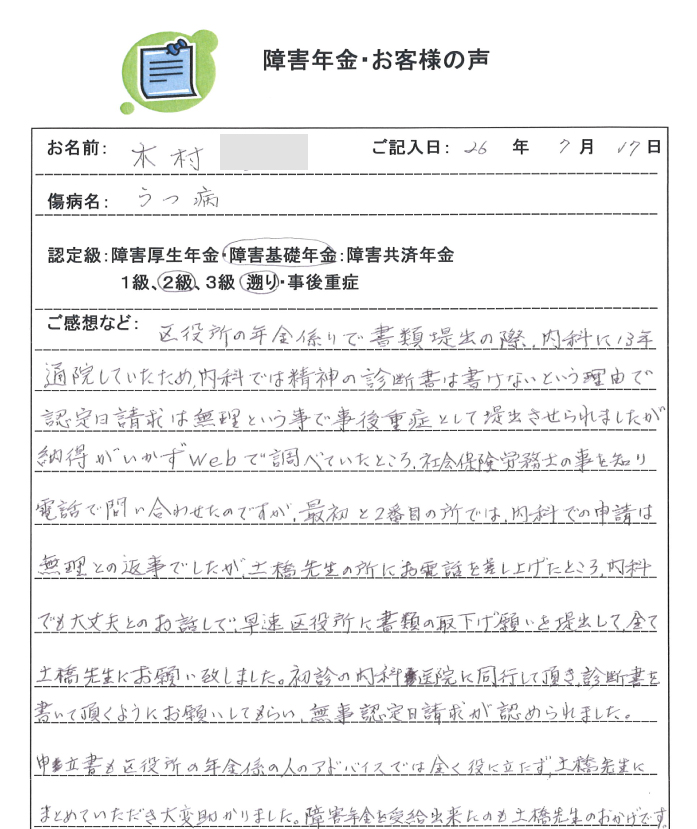 障害年金・お客様の声
お名前: 木村 ご記入日: 26 年 7 月 17 日
傷病名: うつ病
認定級:障害厚生年金・障害基礎年金:障害共済年金
1級、2級、3級 遡り・事後重症
ご感想など: 区役所の年金係りで書類堤出の際、内科に13年
通院していたため、内科では精神の診断書は書けないという理由で
認定日請求は無理という事で事後重症として堤出させられましたが
納得がいかずwebで調べていたところ、社会保険労務士の事を知り
電話で問い合わせたのですが、最初と2番目の所では、内科での申請は
無理との返事でしたが、土橋先生の所にお電話を差し上げたところ、内科
でも大丈夫とのお話しで、早速区役所に書類の取下げ願いを堤出して、全て
土橋先生にお願い致しました。初診の内科医院に同行して頂き、診断書を
書いて頂くようにお願いしてもらい、無事認定日請求が認められました。
申立書も区役所の年金係の人のアドバイスでは全く役に立たず、土橋先生に
まとめていただき大変助かりました。障害年金を受給出来たのも土橋先生のおかげです。